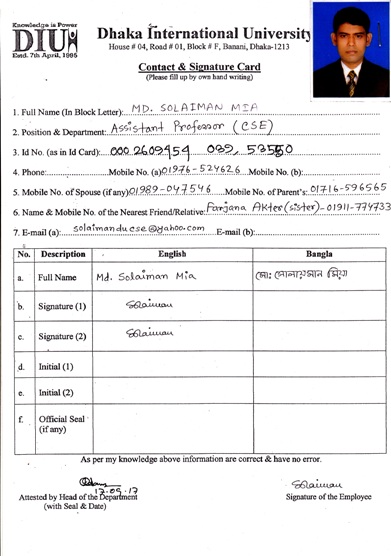 Knowledge is Power
DIU
Estd. 7th April, 1995
Dhaka International University
House # 04, Road # 01, Block # F, Banani, Dhaka-1213
Contact & Signature Card
(Please fill up by own hand writing)
1. Full Name (In Block Letter): MD. SOLAIMAN MIA
2. Position & Department: Assistant Professor (CSE)
3. Id No. (as in Id Card): 000 2609454 039, 53550
4. Phone: Mobile No. (a) 01976-524626 Mobile No. (b):
5. Mobile No. of Spouse (if any) 01989-047546 Mobile No. of Parent's: 01716-596565
6. Name & Mobile No. of the Nearest Friend/Relative: Farjana Akter (sister)-01911-774733
7. E-mail (a): solaimanducse@yahoo.com E-mail (b):
No. Description English Bangla
a. Full Name Md. Solaiman Mia মো: সোলায়মান মিয়া
b. Signature (1) Solaiman
c. Signature (2) Solaiman
d. Initial (1)
e. Initial (2)
f. Official Seal (if any)
As per my knowledge above information are correct & have no error.
17.09.17 Solaiman
Attested by Head of the Department Signature of the Employee
(with Seal & Date)